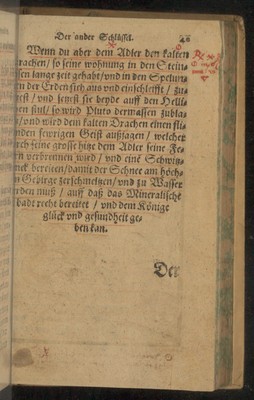 Der ander Schlüssel. 40
Wenn du aber dem Adler den kalten
rachen / so seine wohnung in den Stein-
sen lange zeit gehabt / vnd in den Spelun-
n der Erden sich aus vnd einschleifft / zu-
setzest / vnd setzest sie beyde auff den Helli-
en stul / so wird Pluto dermassen zubla-
/ vnd wird dem kalten Drachen einen fli-
nden fewrigen Geist außjagen / welcher
rch seine grosse hitze dem Adler seine Fe-
n verbrennen wird / vnd eine Schwitz-
bereiten / damit der Schnee am höch-
n Gebirge zerschmeltzen / vnd zu Wasser
rden muß / auff daß das Mineralische
badt recht bereitet / vnd dem Könige
glück vnd gesundheit ge-
ben kan.
Der